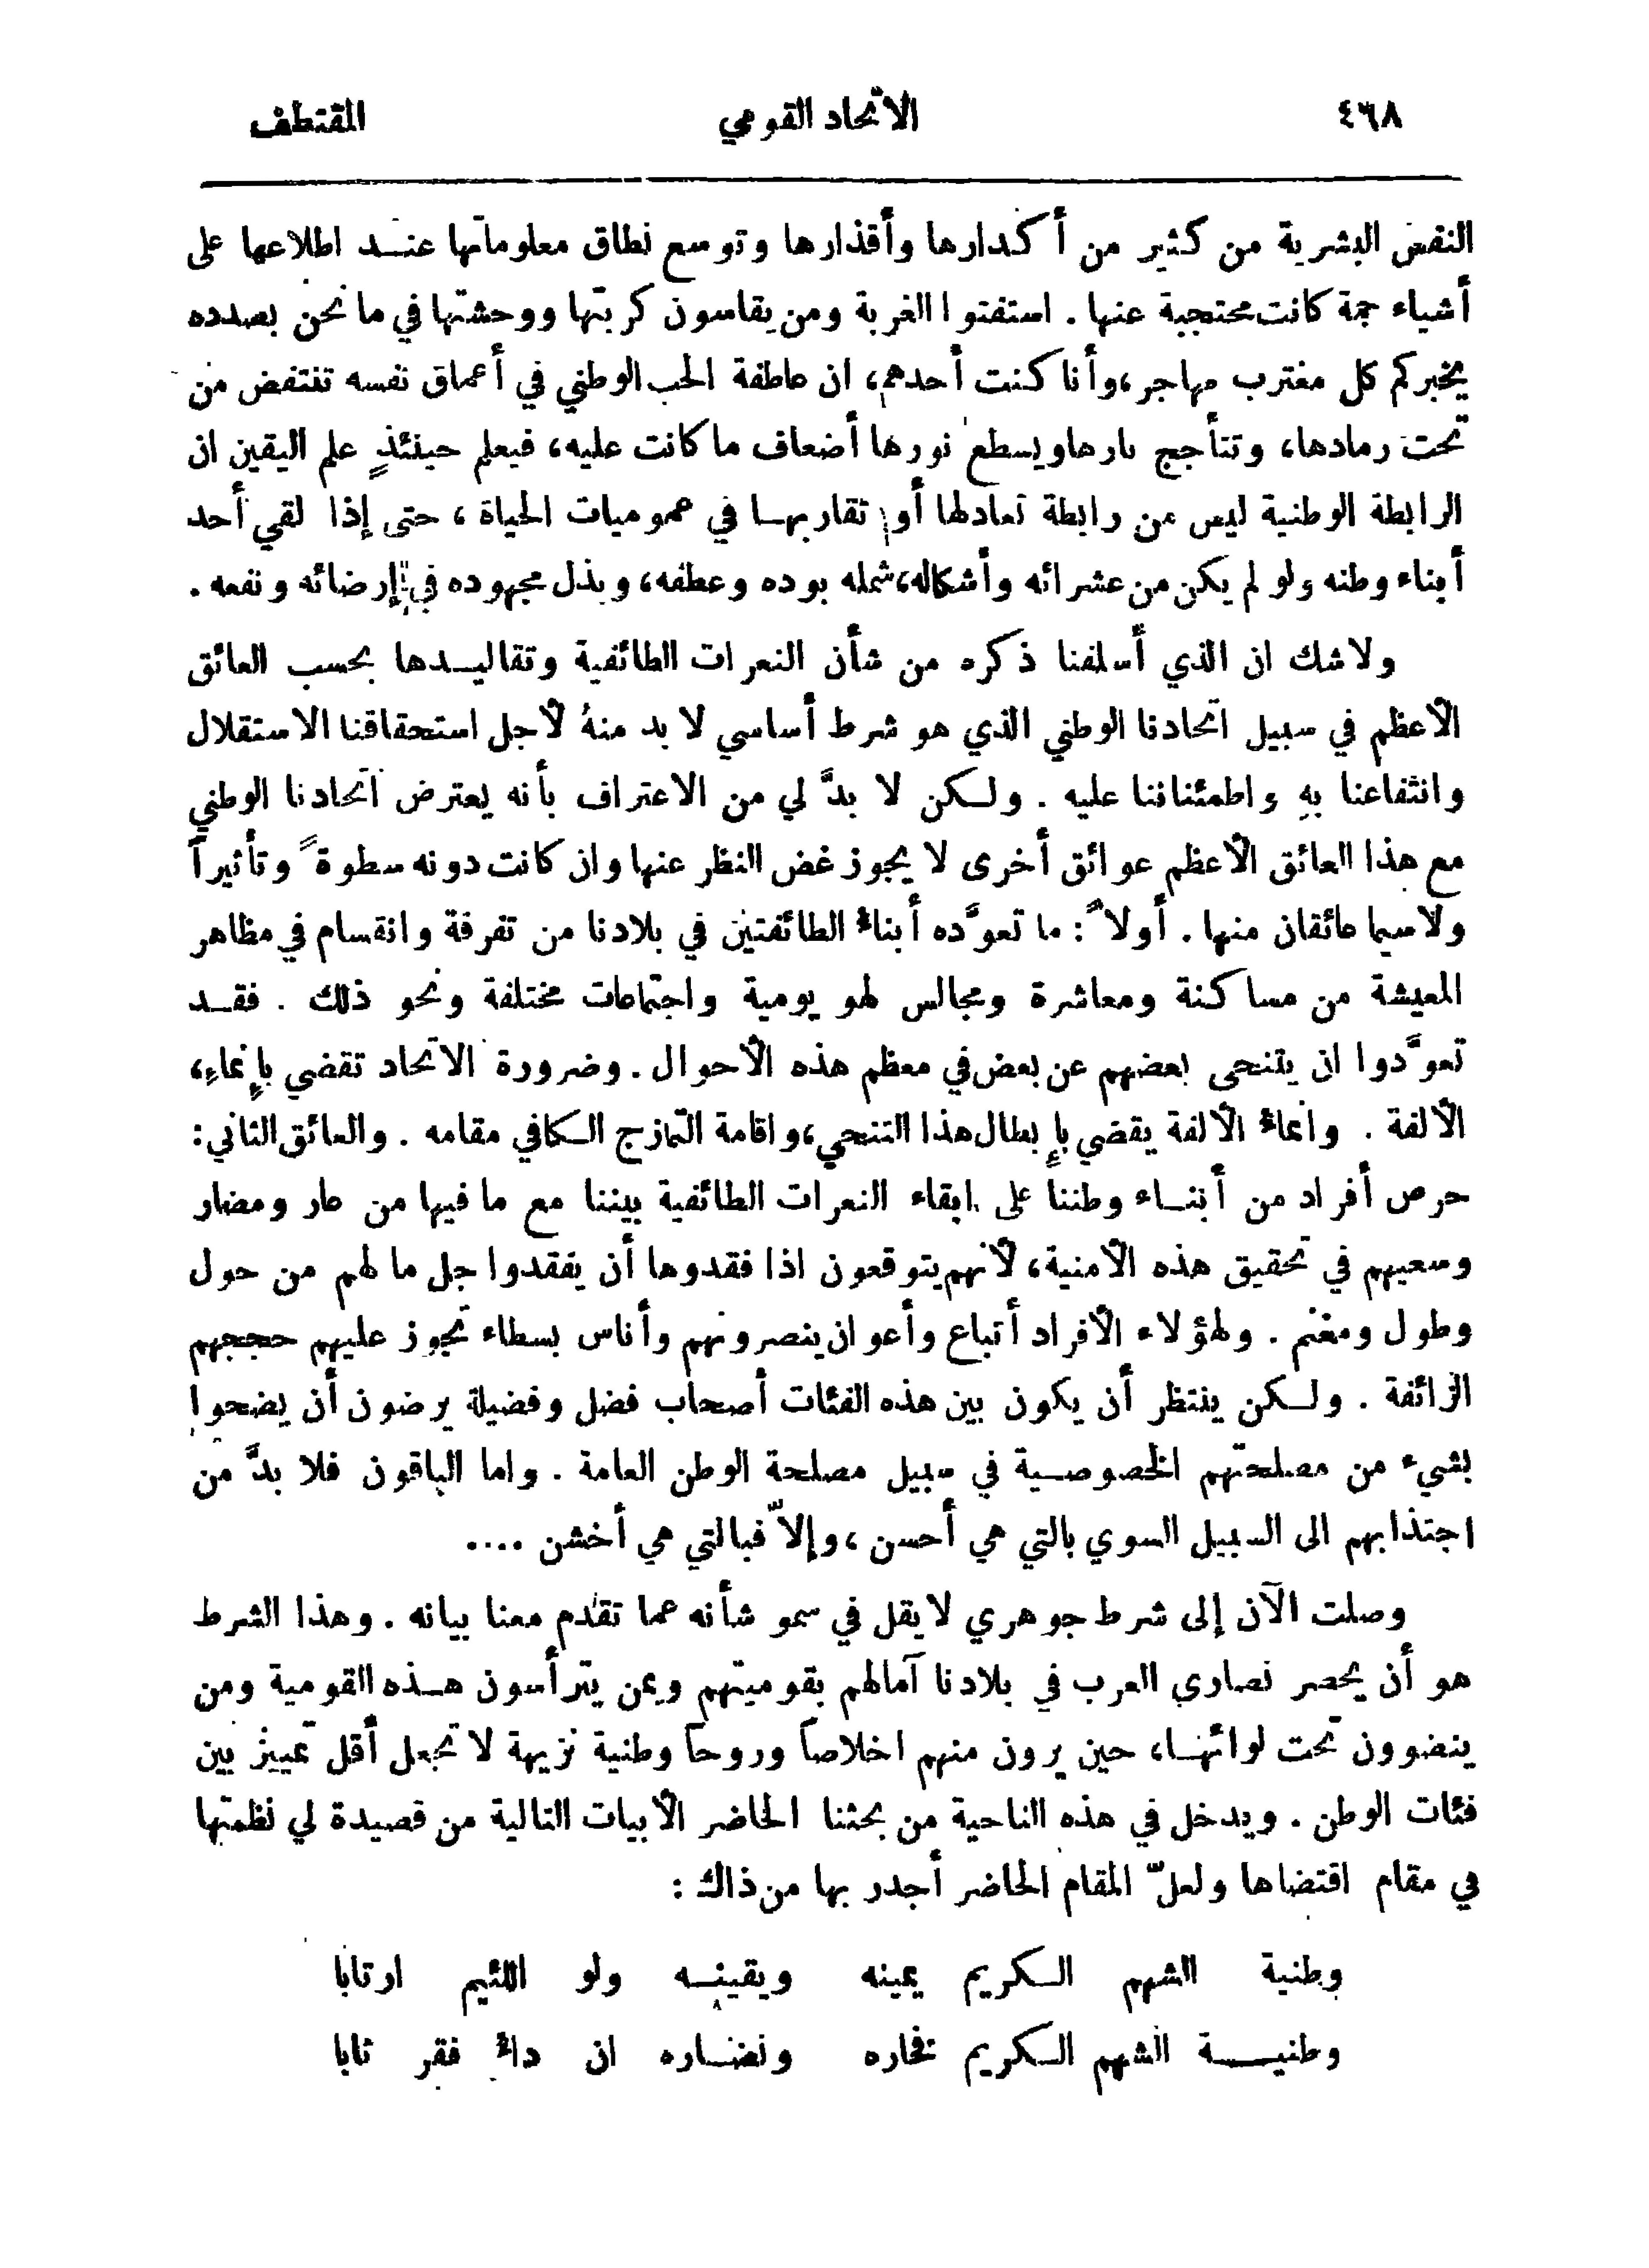 ٤٦٨ الاتحاد القومي المقتطف
النفس البشرية من كثير من أكدارها وأقذارها وتوسع نطاق معلوماتها عنــد اطلاعها على
أشياء جمة كانت محتجبة عنها . استفتوا الغربة ومن يقاسون كربتها ووحشتها في ما نحن بصدده
يخبركم كل مغترب مهاجر ، وأنا كنت أحدهم ، ان عاطفة الحب الوطني في أعماق نفسه تنتفض من
تحت رمادها ، وتتأجج نارها ويسطع نورها أضعاف ما كانت عليه ، فيعلم حينئذٍ علم اليقين ان
الرابطة الوطنية ليس من رابطة تعادلها أو تقاربهـا في عموميات الحياة ، حتى إذا لقي أحد
أبناء وطنه ولو لم يكن من عشرائه وأشكاله ، شمله بوده وعطفه ، وبذل مجهوده في إرضائه ونفعه .
ولا شك ان الذي أسلفنا ذكره من شأن النعرات الطائفية وتقاليــدها بحسب العائق
الأعظم في سبيل اتحادنا الوطني الذي هو شرط أساسي لا بد منهُ لأجل استحقاقنا الاستقلال
وانتفاعنا بهِ واطمئناننا عليه . ولـكن لا بدَّ لي من الاعتراف بأنه يعترض اتحادنا الوطني
مع هذا العائق الأعظم عوائق أخرى لا يجوز غض النظر عنها وان كانت دونه سطوةً وتأثيراً
ولاسيما عائقان منها . أولاً : ما تعوَّده أبناءُ الطائفتين في بلادنا من تفرقة وانقسام في مظاهر
المعيشة من مساكنة ومعاشرة ومجالس لهو يومية واجتماعات مختلفة ونحو ذلك . فقــد
تعوَّدوا ان يتنحى بعضهم عن بعض في معظم هذه الأحوال . وضرورة الاتحاد تقضي بإنماءِ ،
الألفة . وانماءُ الألفة يقضي بإبطال هذا التنحي ، واقامة التمازج الـكافي مقامه . والعائق الثاني :
حرص أفراد من أبنــاء وطننا على ابقاء النعرات الطائفية بيننا مع ما فيها من عار ومضار
وسعيهم في تحقيق هذه الأمنية ، لأنهم يتوقعون اذا فقدوها أن يفقدوا جل ما لهم من حول
وطول ومغنم . ولهؤلاء الأفراد أتباع وأعوان ينصرونهم وأناس بسطاء تجوز عليهم حججهم
الزائفة . ولـكن ينتظر أن يكون بين هذه الفئات أصحاب فضل وفضيلة يرضون أن يضحوا
بشيء من مصلحتهم الخصوصــية في سبيل مصلحة الوطن العامة . واما الباقون فلا بدَّ من
اجتذابهم الى السبيل السوي بالتي هي أحسن ، وإلاّ فبالتي هي أخشن ....
وصلت الآن إلى شرط جوهري لا يقل في سمو شأنه عما تقدم معنا بيانه . وهذا الشرط
هو أن يحصر نصارى العرب في بلادنا آمالهم بقوميتهم وبمن يترأسون هــذه القومية ومن
ينضوون تحت لوائهـا ، حين يرون منهم اخلاصاً وروحاً وطنية نزيهة لا تجعل أقل تمييز بين
فئات الوطن . ويدخل في هذه الناحية من بحثنا الحاضر الأبيات التالية من قصيدة لي نظمتها
في مقام اقتضاها ولعلّ المقام الحاضر أجدر بها من ذاك :
وطنية الشهم الـكريم يمينه ويقينــه ولو اللئيم ارتابا
وطنيــة الشهم الـكريم نخاره ونضــاره ان داءُ فقر نابا